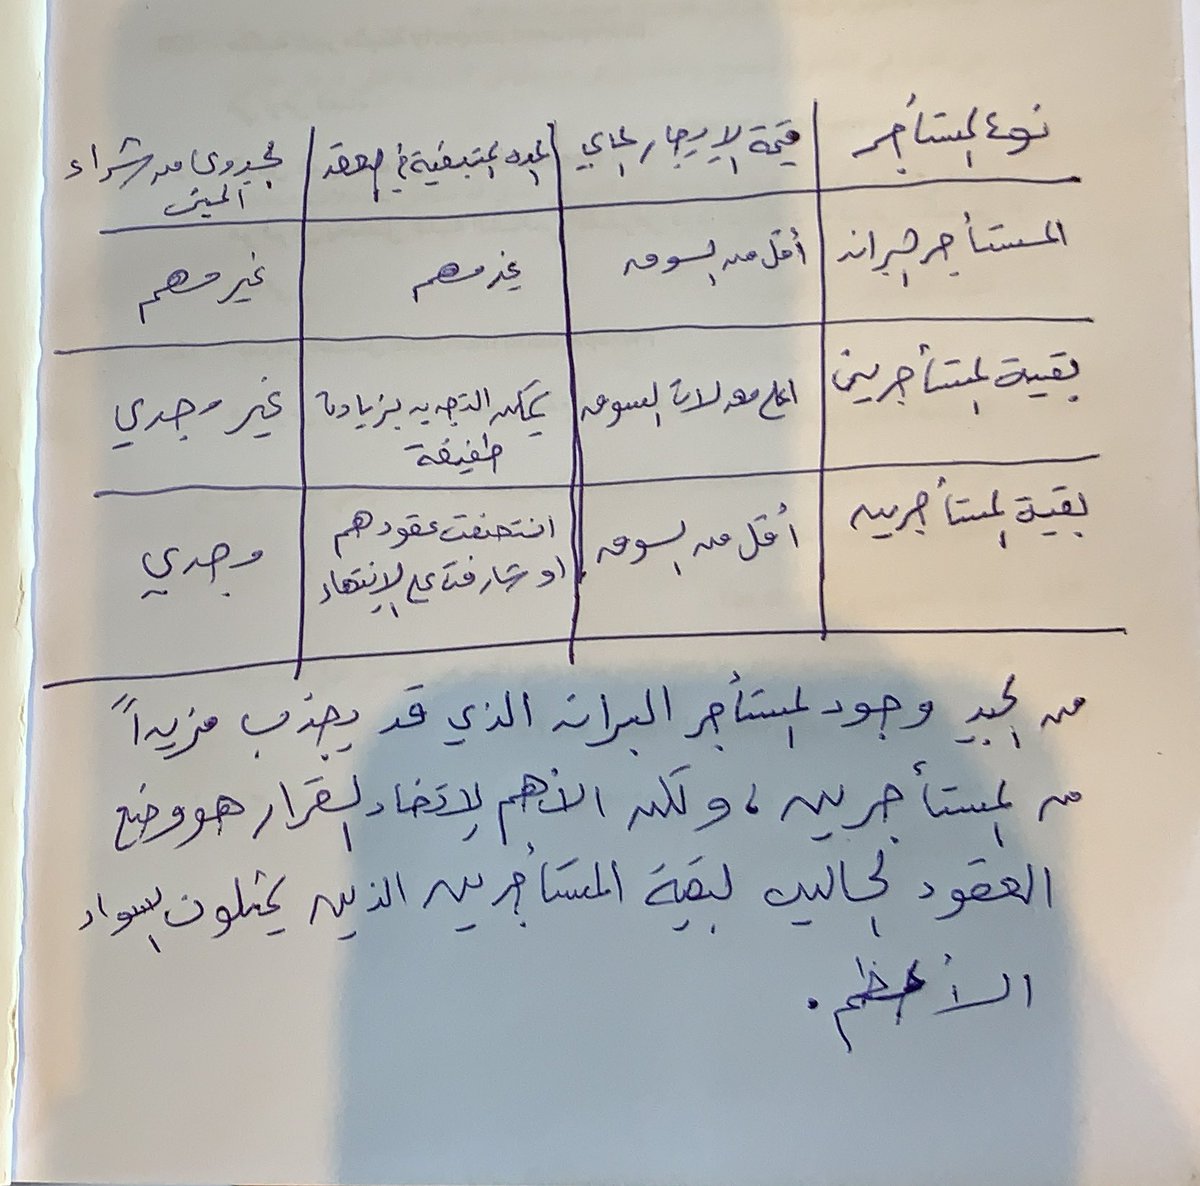 نوع المستأجر | قيمة الإيجار الحالي | المدة المتبقية في العقد | الجدوى من شراء المبنى
المستأجر البراند | أقل من السوق | غير مهم | غير مهم
بقية المستأجرين | اعلى معدلات السوق | يمكن التجديد بزيادة طفيفة | غير مجدي
بقية المستأجرين | أقل من السوق | انتصفت عقودهم او شارفت على الانتهاء | مجدي
من الجيد وجود المستأجر البراند الذي قد يجذب مزيداً
من المستأجرين، ولكن الأهم لإتخاد القرار هو وضع
العقود الحالية لبقية المستأجرين الذين يمثلون السواد
الأعظم.